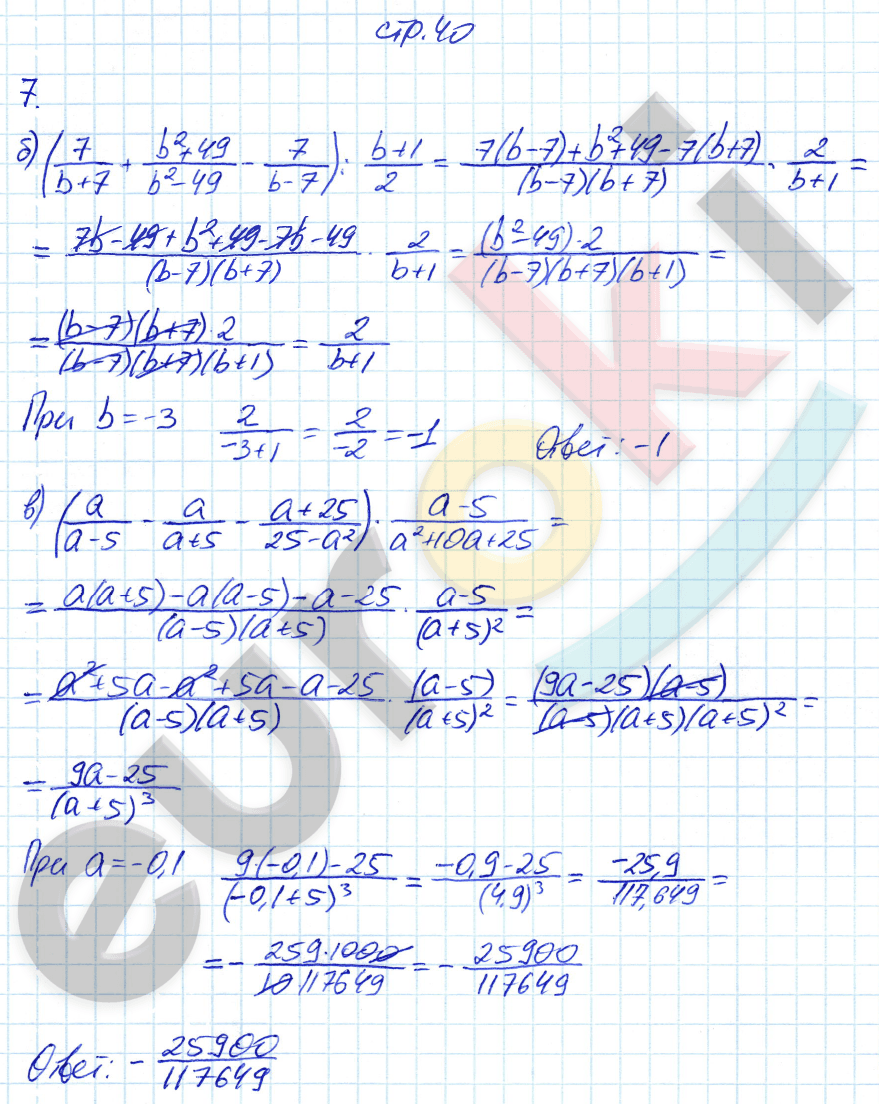 стр. 40
7.
б) (7/(b+7) + (b²+49)/(b²-49) - 7/(b-7)) : (b+1)/2 = (7(b-7)+b²+49-7(b+7))/((b-7)(b+7)) · 2/(b+1) =
= (7b-49+b²+49-7b-49)/((b-7)(b+7)) · 2/(b+1) = ((b²-49)·2)/((b-7)(b+7)(b+1)) =
= ((b-7)(b+7)·2)/((b-7)(b+7)(b+1)) = 2/(b+1)
При b=-3 2/(-3+1) = 2/(-2) = -1 Ответ: -1
в) (a/(a-5) - a/(a+5) - (a+25)/(25-a²)) · (a-5)/(a²+10a+25) =
= (a(a+5)-a(a-5)-a-25)/((a-5)(a+5)) · (a-5)/(a+5)² =
= (a²+5a-a²+5a-a-25)/((a-5)(a+5)) · (a-5)/(a+5)² = ((9a-25)(a-5))/((a-5)(a+5)(a+5)²) =
= (9a-25)/(a+5)³
При a=-0,1 (9·(-0,1)-25)/(-0,1+5)³ = (-0,9-25)/(4,9)³ = -25,9/117,649 =
= - (259·1000)/(10 117649) = - 25900/117649
Ответ: - 25900/117649
euroki